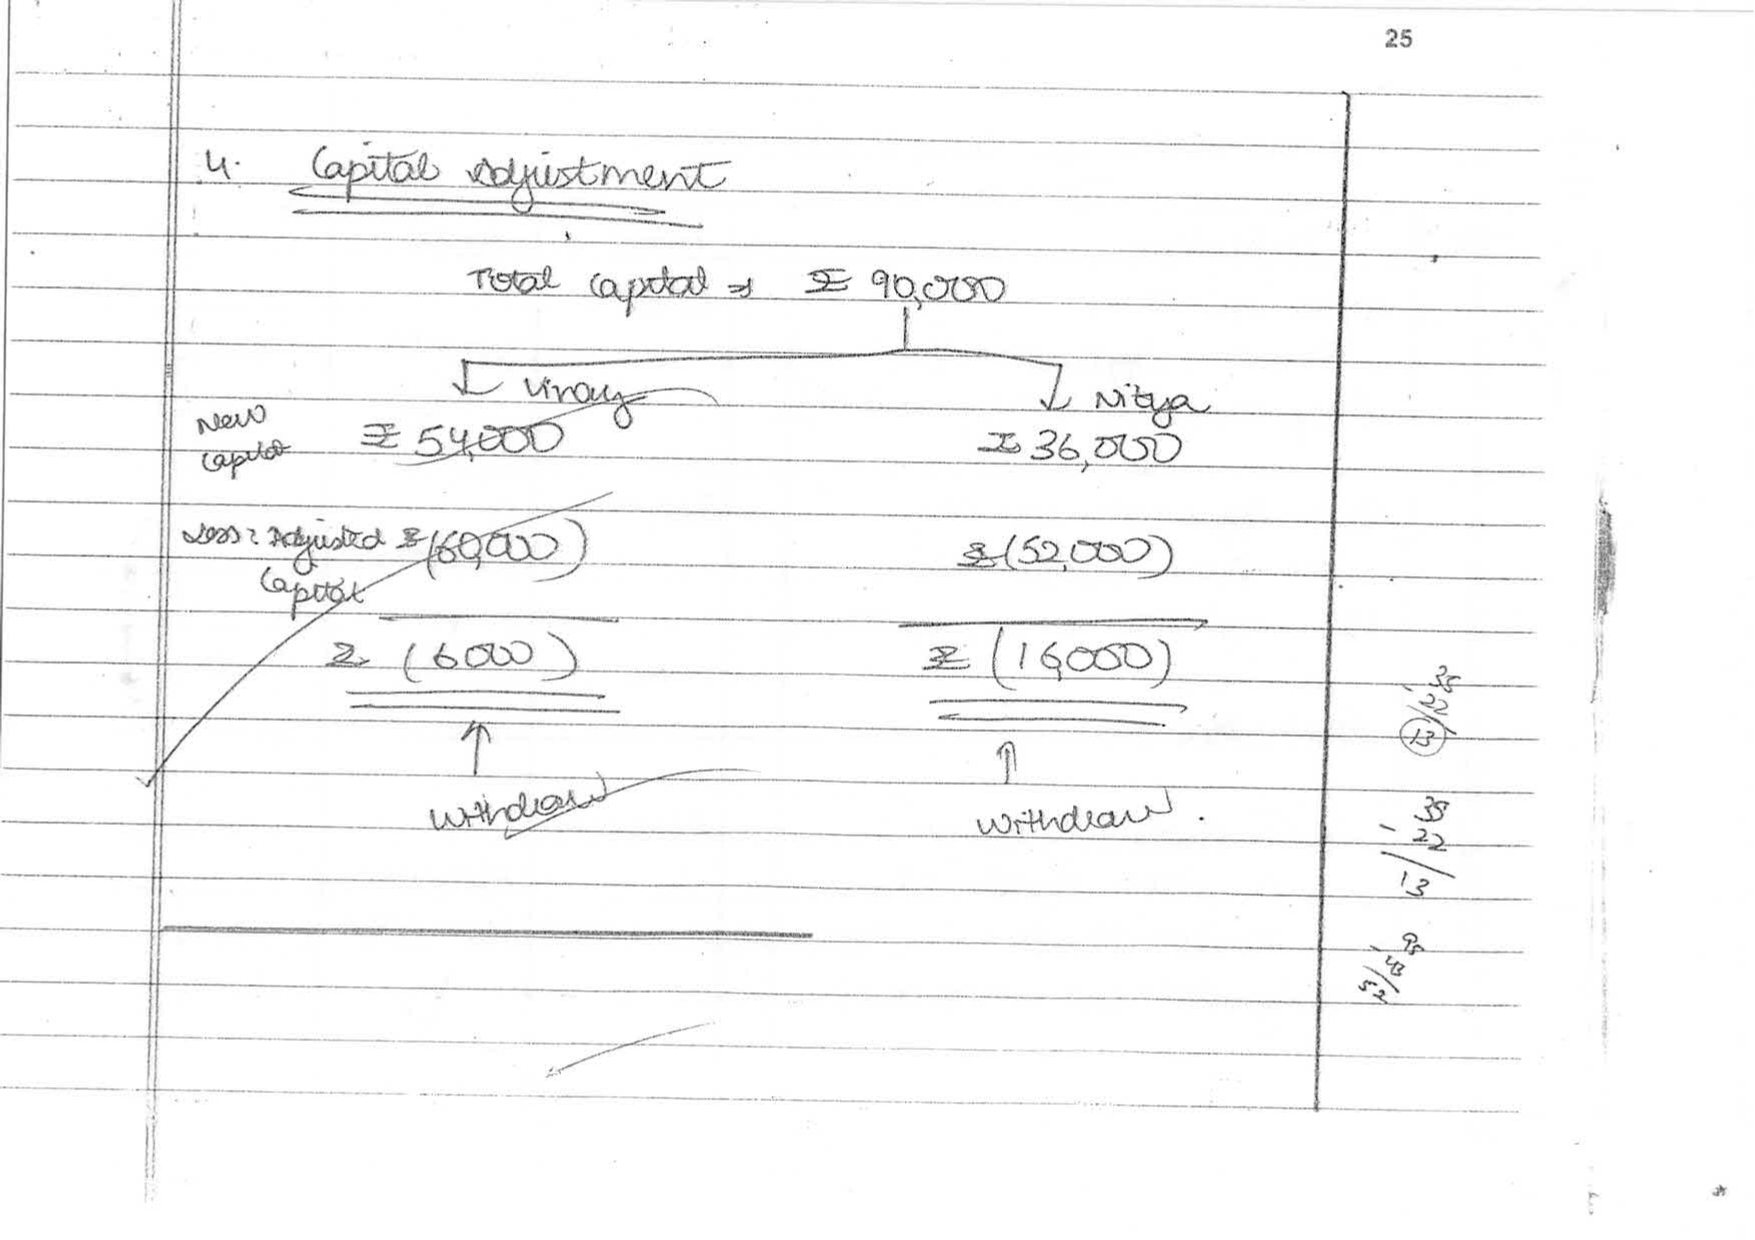 25
4. Capital Adjustment
Total Capital ⇒ ₹ 90,000
Vinay Nitya
New Capital ₹ 54,000 ₹ 36,000
Less: Adjusted Capital ₹ (60,000) ₹ (52,000)
₹ (6000) ₹ (16,000)
↑ ↑
Withdraw Withdraw.
13
13